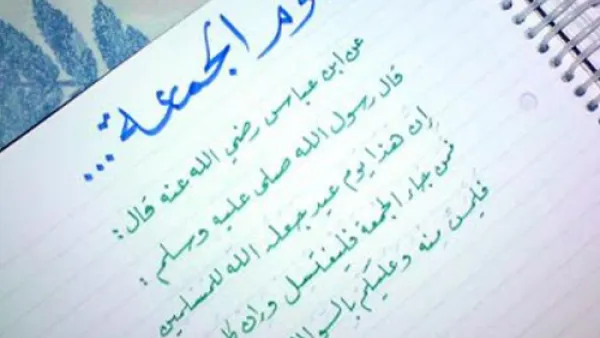 الجمعة...
عن ابن عباس رضي الله عنه قال:
قال رسول الله صلى عليه وسلم:
إن هذا يوم عيد جعله الله للمسلمين
فمن جاء الجمعة فليغتسل وإن
فليمس منه وعليكم بالسوا